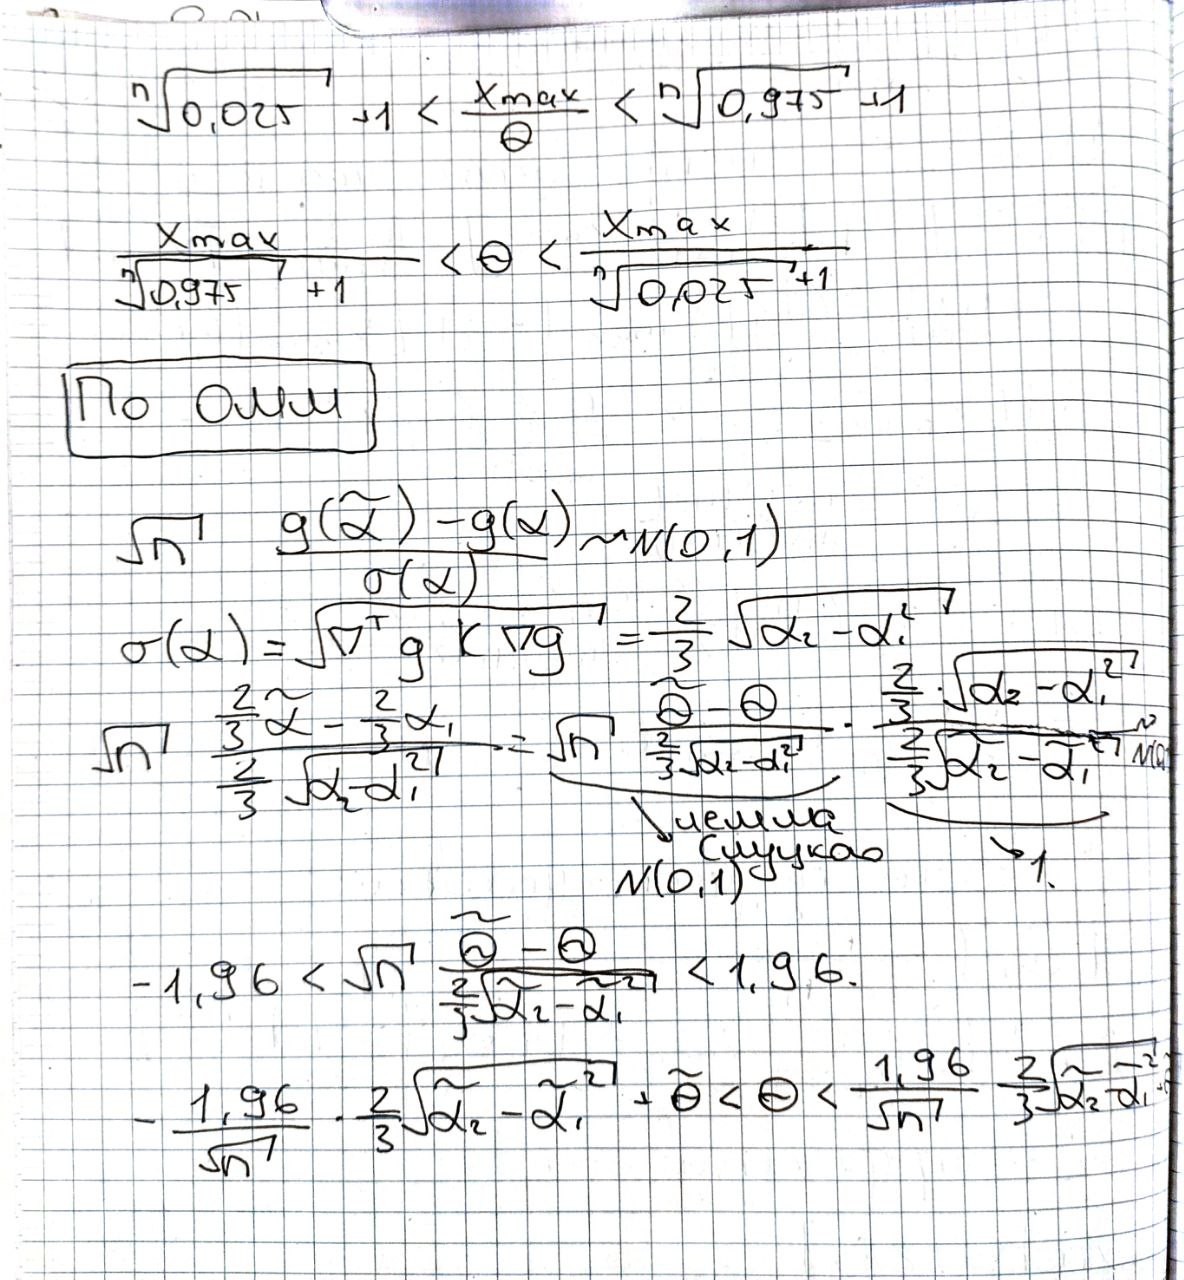 ⁿ√0,025 +1 < Xmax/Θ < ⁿ√0,975 +1
Xmax/(ⁿ√0,975 +1) < Θ < Xmax/(ⁿ√0,025 +1)
По ОММ
√n (g(α̃) - g(α))/σ(α) ~ N(0,1)
σ(α) = √(∇ᵀg K ∇g) = 2/3 √(α₂ - α₁²)
√n (2/3 α̃ - 2/3 α₁)/(2/3 √(α₂ - α₁²)) = √n (Θ̃ - Θ)/(2/3 √(α₂ - α₁²)) · (2/3 · √(α₂ - α₁²))/(2/3 √(α̃₂ - α̃₁²)) ~
лемма
Слуцкого
→ 1.
N(0,1)
-1,96 < √n (Θ̃ - Θ)/(2/3 √(α̃₂ - α̃₁²)) < 1,96.
- 1,96/√n · 2/3 √(α̃₂ - α̃₁²) + Θ̃ < Θ < 1,96/√n 2/3 √(α̃₂ - α̃₁²)